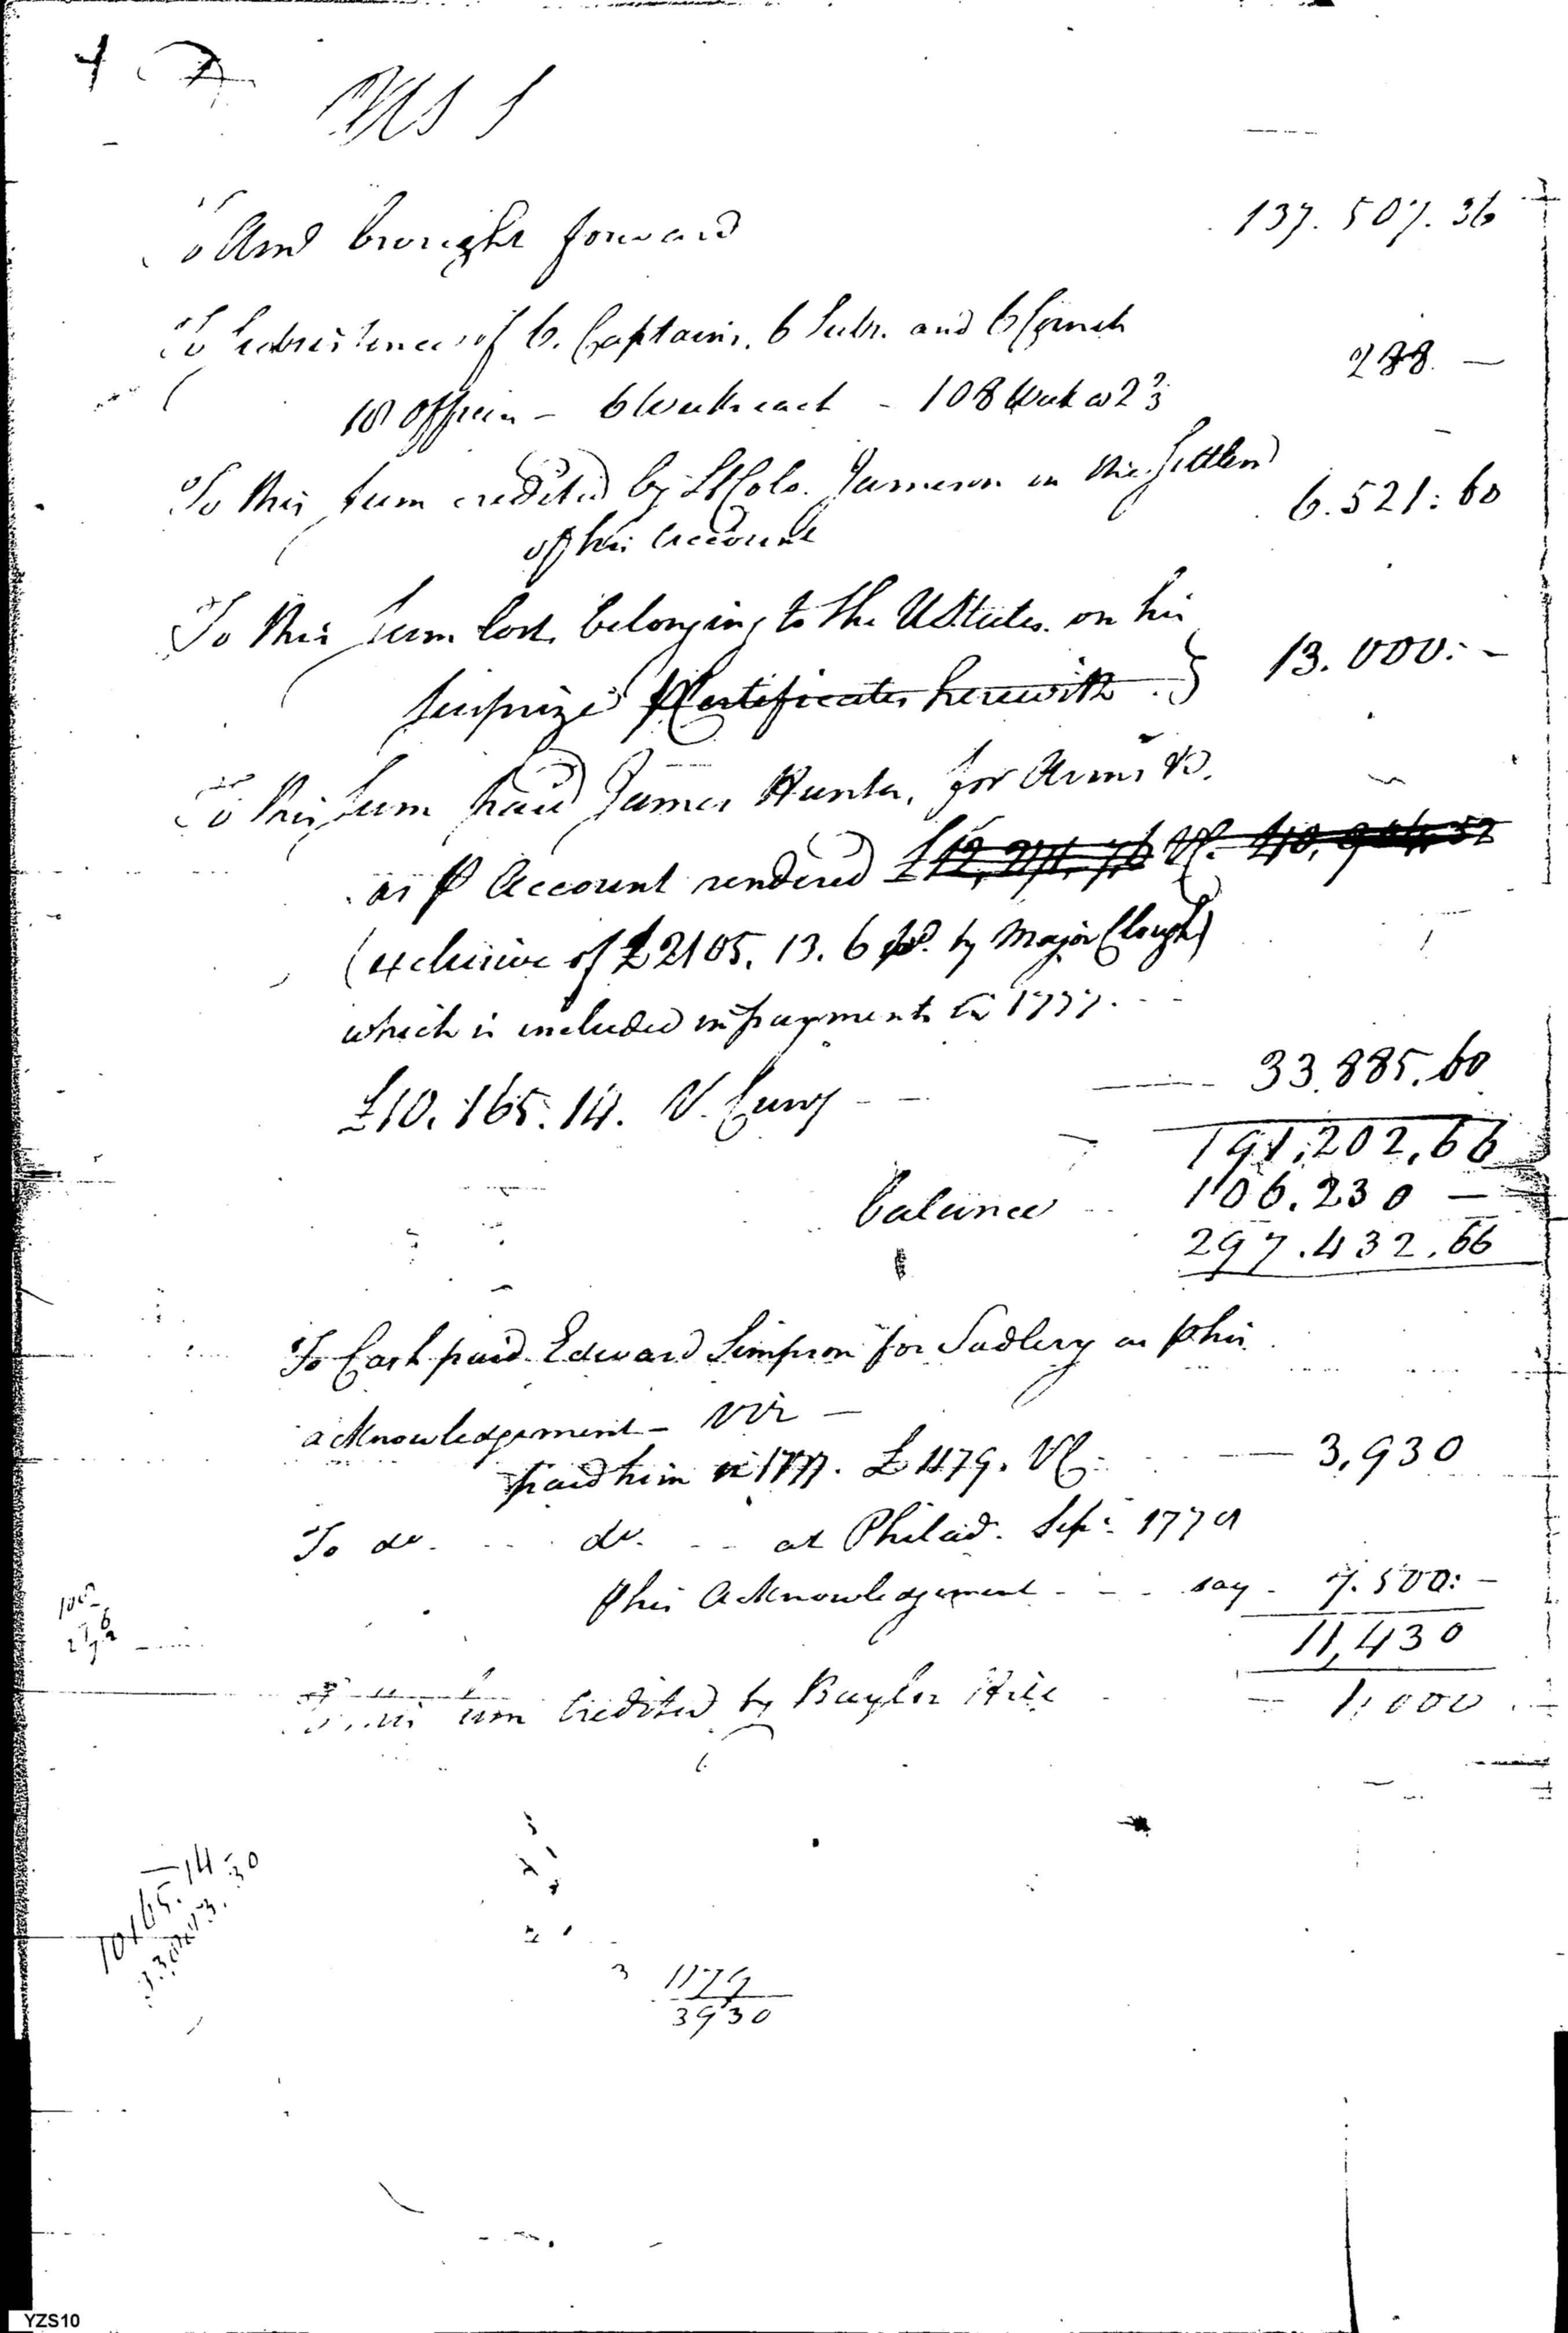 To Amt brought forward 137.507.36
To Subsistence of 6. Captains. 6 Subs. and 6 Cornets
18 Officers - 6 Weeks each - 108 Weeks @ 2 2/3 288. —
To this Sum credited by Lt Colo. Jameson in the Settlemt
of his account 6.521:60
To this Sum lost belonging to the UStates on his
Surprize ⅌ Certificates herewith } 13.000:-
To this Sum paid James Hunter, for Arms &c.
as ⅌ Account rendered
(exclusive of £2105.13.6 pd. by Major Clough)
which is included in payments in 1777.
£10.165.14. V. Curry — 33.885.60
191,202,66
balance 106.230 —
297.432.66
To Cash paid Edward Simpson for Sadlery as ⅌ his
acknowledgement - Viz —
paid him in 1777. £1179. VC. — 3,930
To do. do. at Philad. Sepr. 1778
⅌ his Acknowledgement - - - say - 7.500:-
11,430
Sum Credited by Baylor Hill — 1,000
10165.14
1179
3930
YZS10